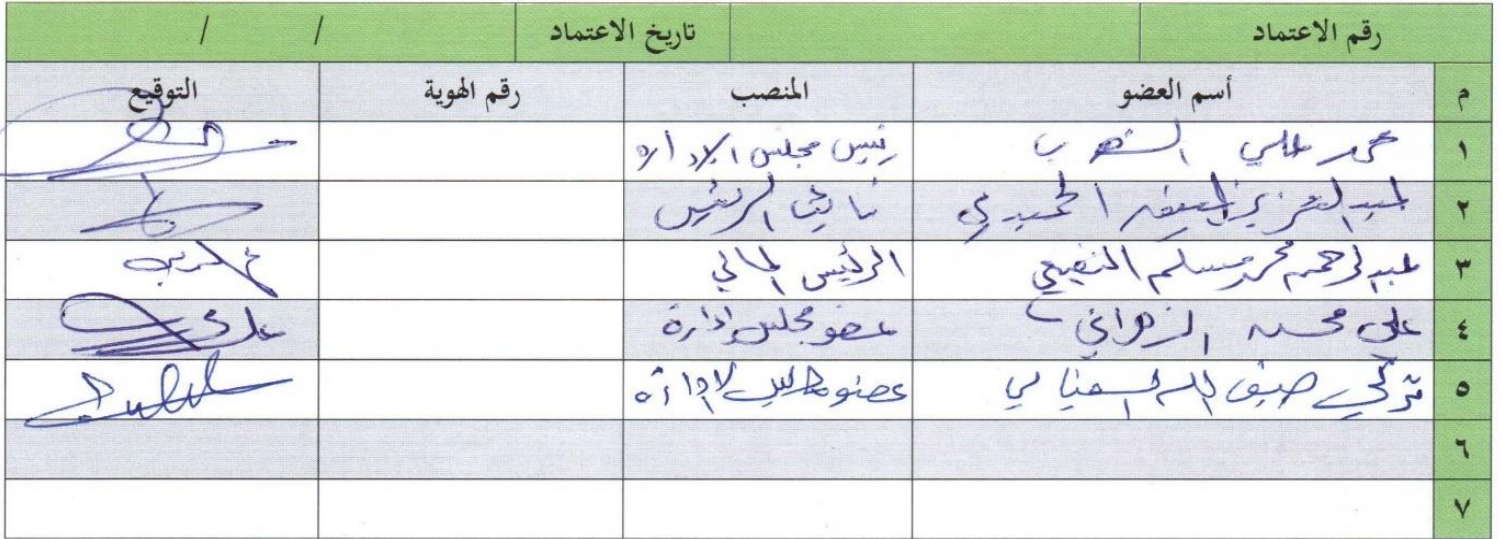 رقم الاعتماد تاريخ الاعتماد / /
م أسم العضو المنصب رقم الهوية التوقيع
١ محمد علي رئيس مجلس الادارة
٢ عبدالعزيز الحميدي نائب الرئيس
٣ عبدالرحمن محمد مسلم النفيعي الرئيس المالي
٤ علي محسن الزهراني عضو مجلس إدارة
٥ تركي ضيف الله السفياني عضو مجلس الادارة
٦
٧